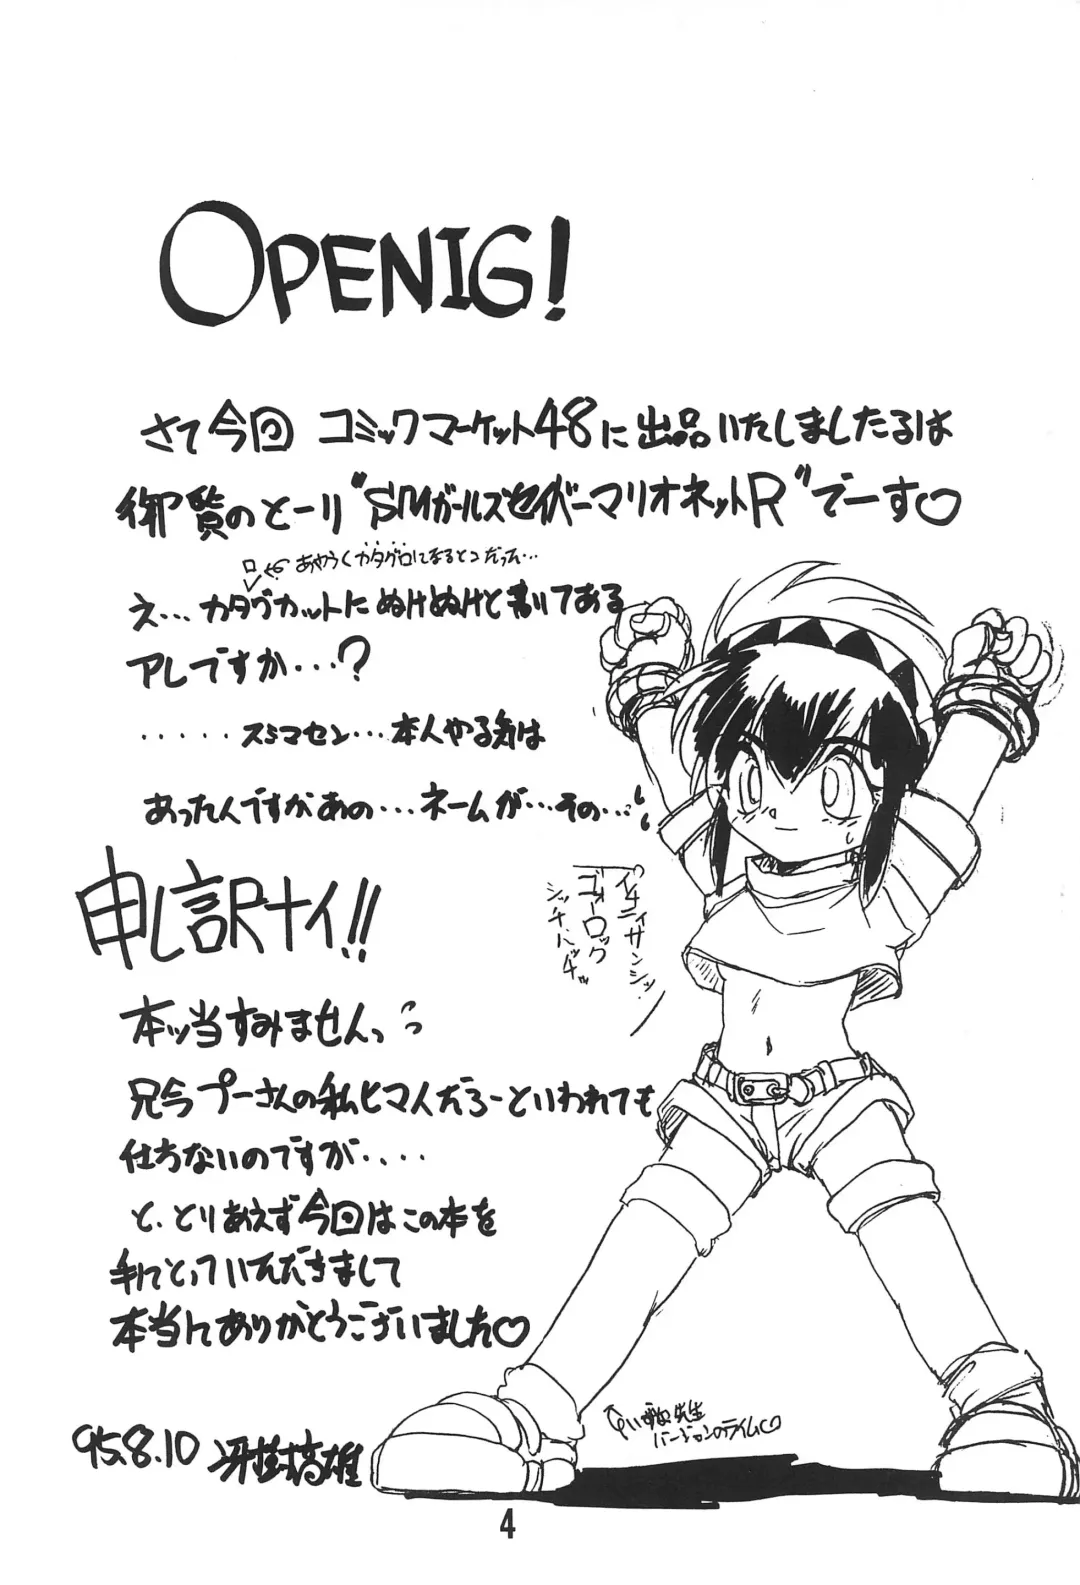 OPENIG!
さて今回 コミックマーケット48に出品いたしましたるは
御覧のとーり"SMガールズセイバーマリオネットR"でーす♡
ロ ← あやうくカタグロになるとこだった…
え…カタグカットにぬけぬけと書いてある
アレですか・・・?
・・・・・スミマセン…本人やる気は
あったんですがあの…ネームが…その…
申し訳ナイ!!
本ッ当すみませんっ
兄今プーさんの私ヒマ人だろーといわれても
仕方ないのですが・・・・
と、とりあえず今回はこの本を
手にとっていただきまして
本当にありがとうございました♡
イチ ニィ サン シッ
ゴォー ロック
シッチ ハッチ
いずぬ先生
バージョンのライム♡
'95.8.10 冴樹高雄
4